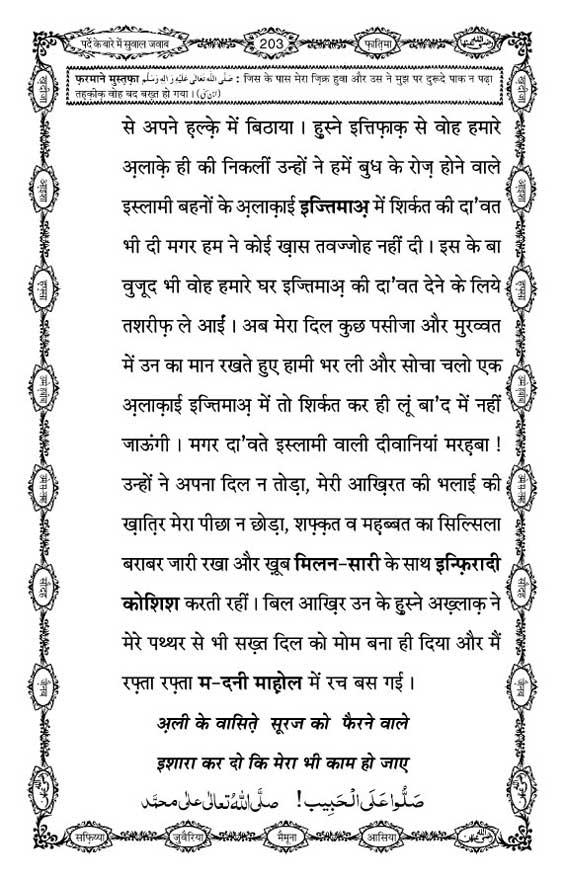 पर्दे के बारे में सुवाल जवाब
203
फ़ातिमा
फ़रमाने मुस्त़फ़ा صَلَّى اللّٰهُ تَعَالٰى عَلَيْهِ وَاٰلِهٖ وَسَلَّم : जिस के पास मेरा ज़िक्र हुवा और उस ने मुझ पर दुरूदे पाक न पढ़ा
तह़क़ीक़ वोह बद बख़्त हो गया ।
से अपने ह़ल्के़ में बिठाया । हु़स्ने इत्तिफ़ाक़ से वोह हमारे
अ़लाके़ ही की निकलीं उन्हों ने हमें बुध के रोज़ होने वाले
इस्लामी बहनों के अ़लाक़ाई इज्तिमाअ़ में शिर्कत की दा'वत
भी दी मगर हम ने कोई ख़ास तवज्जोह नहीं दी । इस के बा
वुजूद भी वोह हमारे घर इज्तिमाअ़ की दा'वत देने के लिये
तशरीफ़ ले आईं । अब मेरा दिल कुछ पसीजा और मुरव्वत
में उन का मान रखते हुए हामी भर ली और सोचा चलो एक
अ़लाक़ाई इज्तिमाअ़ में तो शिर्कत कर ही लूं बा'द में नहीं
जाऊंगी । मगर दा'वते इस्लामी वाली दीवानियां मरह़बा !
उन्हों ने अपना दिल न तोड़ा, मेरी आख़िरत की भलाई की
ख़ात़िर मेरा पीछा न छोड़ा, शफ़्क़त व मह़ब्बत का सिल्सिला
बराबर जारी रखा और ख़ूब मिलन-सारी के साथ इन्फ़िरादी
कोशिश करती रहीं । बिल आख़िर उन के हु़स्ने अख़्लाक़ ने
मेरे पथ्थर से भी सख़्त दिल को मोम बना ही दिया और मैं
रफ़्ता रफ़्ता म-दनी माह़ोल में रच बस गई ।
अ़ली के वासित़े सूरज को फैरने वाले
इशारा कर दो कि मेरा भी काम हो जाए
صَلُّوا عَلَى الْحَبِيب! صلَّى اللهُ تعالٰى علٰى محمَّد
सफ़िय्या
जुवैरिया
मैमूना
आसिया